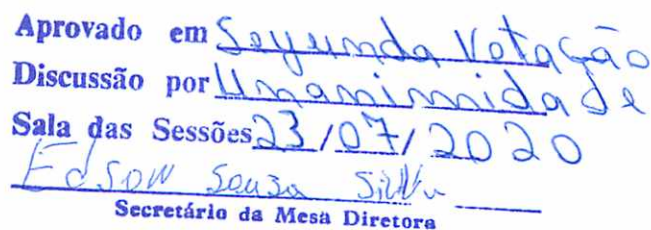 Aprovado em Segunda Votação
Discussão por Unanimidade
Sala das Sessões 23/07/2020
Edson Souza Silva
Secretário da Mesa Diretora